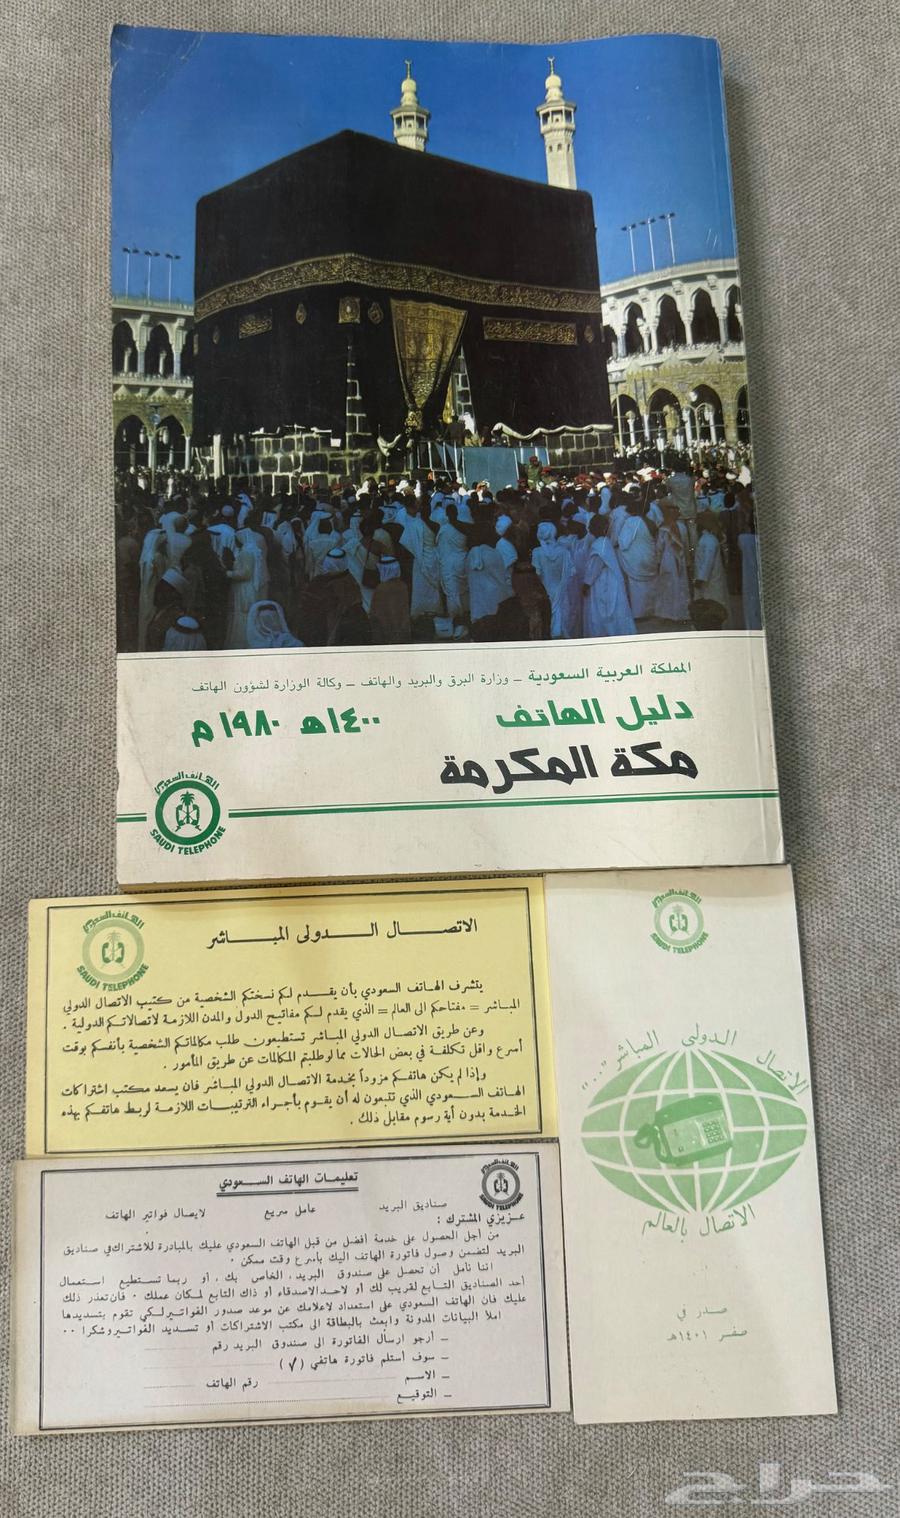 المملكة العربية السعودية - وزارة البرق والبريد والهاتف - وكالة الوزارة لشؤون الهاتف
دليل الهاتف ١٤٠٠ه ١٩٨٠م
مكة المكرمة
الهاتف السعودي
SAUDI TELEPHONE
الهاتف السعودي
SAUDI TELEPHONE
الاتصال الدولى المباشر
يتشرف الهاتف السعودي بأن يقدم لكم نسختكم الشخصية من كتيب الاتصال الدولي
المباشر = مفتاحكم الى العالم = الذي يقدم لكم مفاتيح الدول والمدن اللازمة لاتصالاتكم الدولية .
وعن طريق الاتصال الدولي المباشر تستطيعون طلب مكالماتكم الشخصية بأنفسكم بوقت
أسرع واقل تكلفة في بعض الحالات مما لوطلبتم المكالمات عن طريق المأمور .
وإذا لم يكن هاتفكم مزوداً بخدمة الاتصال الدولي المباشر فان يسعد مكتب اشتراكات
الهاتف السعودي الذي تتبعون له أن يقوم بأجراء الترتيبات اللازمة لربط هاتفكم بهذه
الخدمة بدون أية رسوم مقابل ذلك .
الهاتف السعودي
SAUDI TELEPHONE
الاتصال الدولى المباشر
الاتصال بالعالم
صدر في
صفر ١٤٠١هـ
تعليمات الهاتف السعودي
صناديق البريد عامل سريع لايصال فواتير الهاتف
عزيزي المشترك :
من أجل الحصول على خدمة أفضل من قبل الهاتف السعودي عليك بالمبادرة للاشتراك في صناديق
البريد لتضمن وصول فاتورة الهاتف اليك بأسرع وقت ممكن .
اننا نأمل أن تحصل على صندوق البريد الخاص بك أو ربما تستطيع استعمال
أحد الصناديق التابع لقريب لك أو لاحد الاصدقاء أو ذاك التابع لمكان عملك . فان تعذر ذلك
عليك فان الهاتف السعودي على استعداد لاعلامك عن موعد صدور الفواتير لكي تقوم بتسديدها
املأ البيانات المدونة وابعث بالبطاقة الى مكتب الاشتراكات أو تسديد الفواتير وشكرا ..
- أرجو ارسال الفاتورة الى صندوق البريد رقم
- سوف أستلم فاتورة هاتفي (٧)
- الاسم رقم الهاتف
- التوقيع
حراج